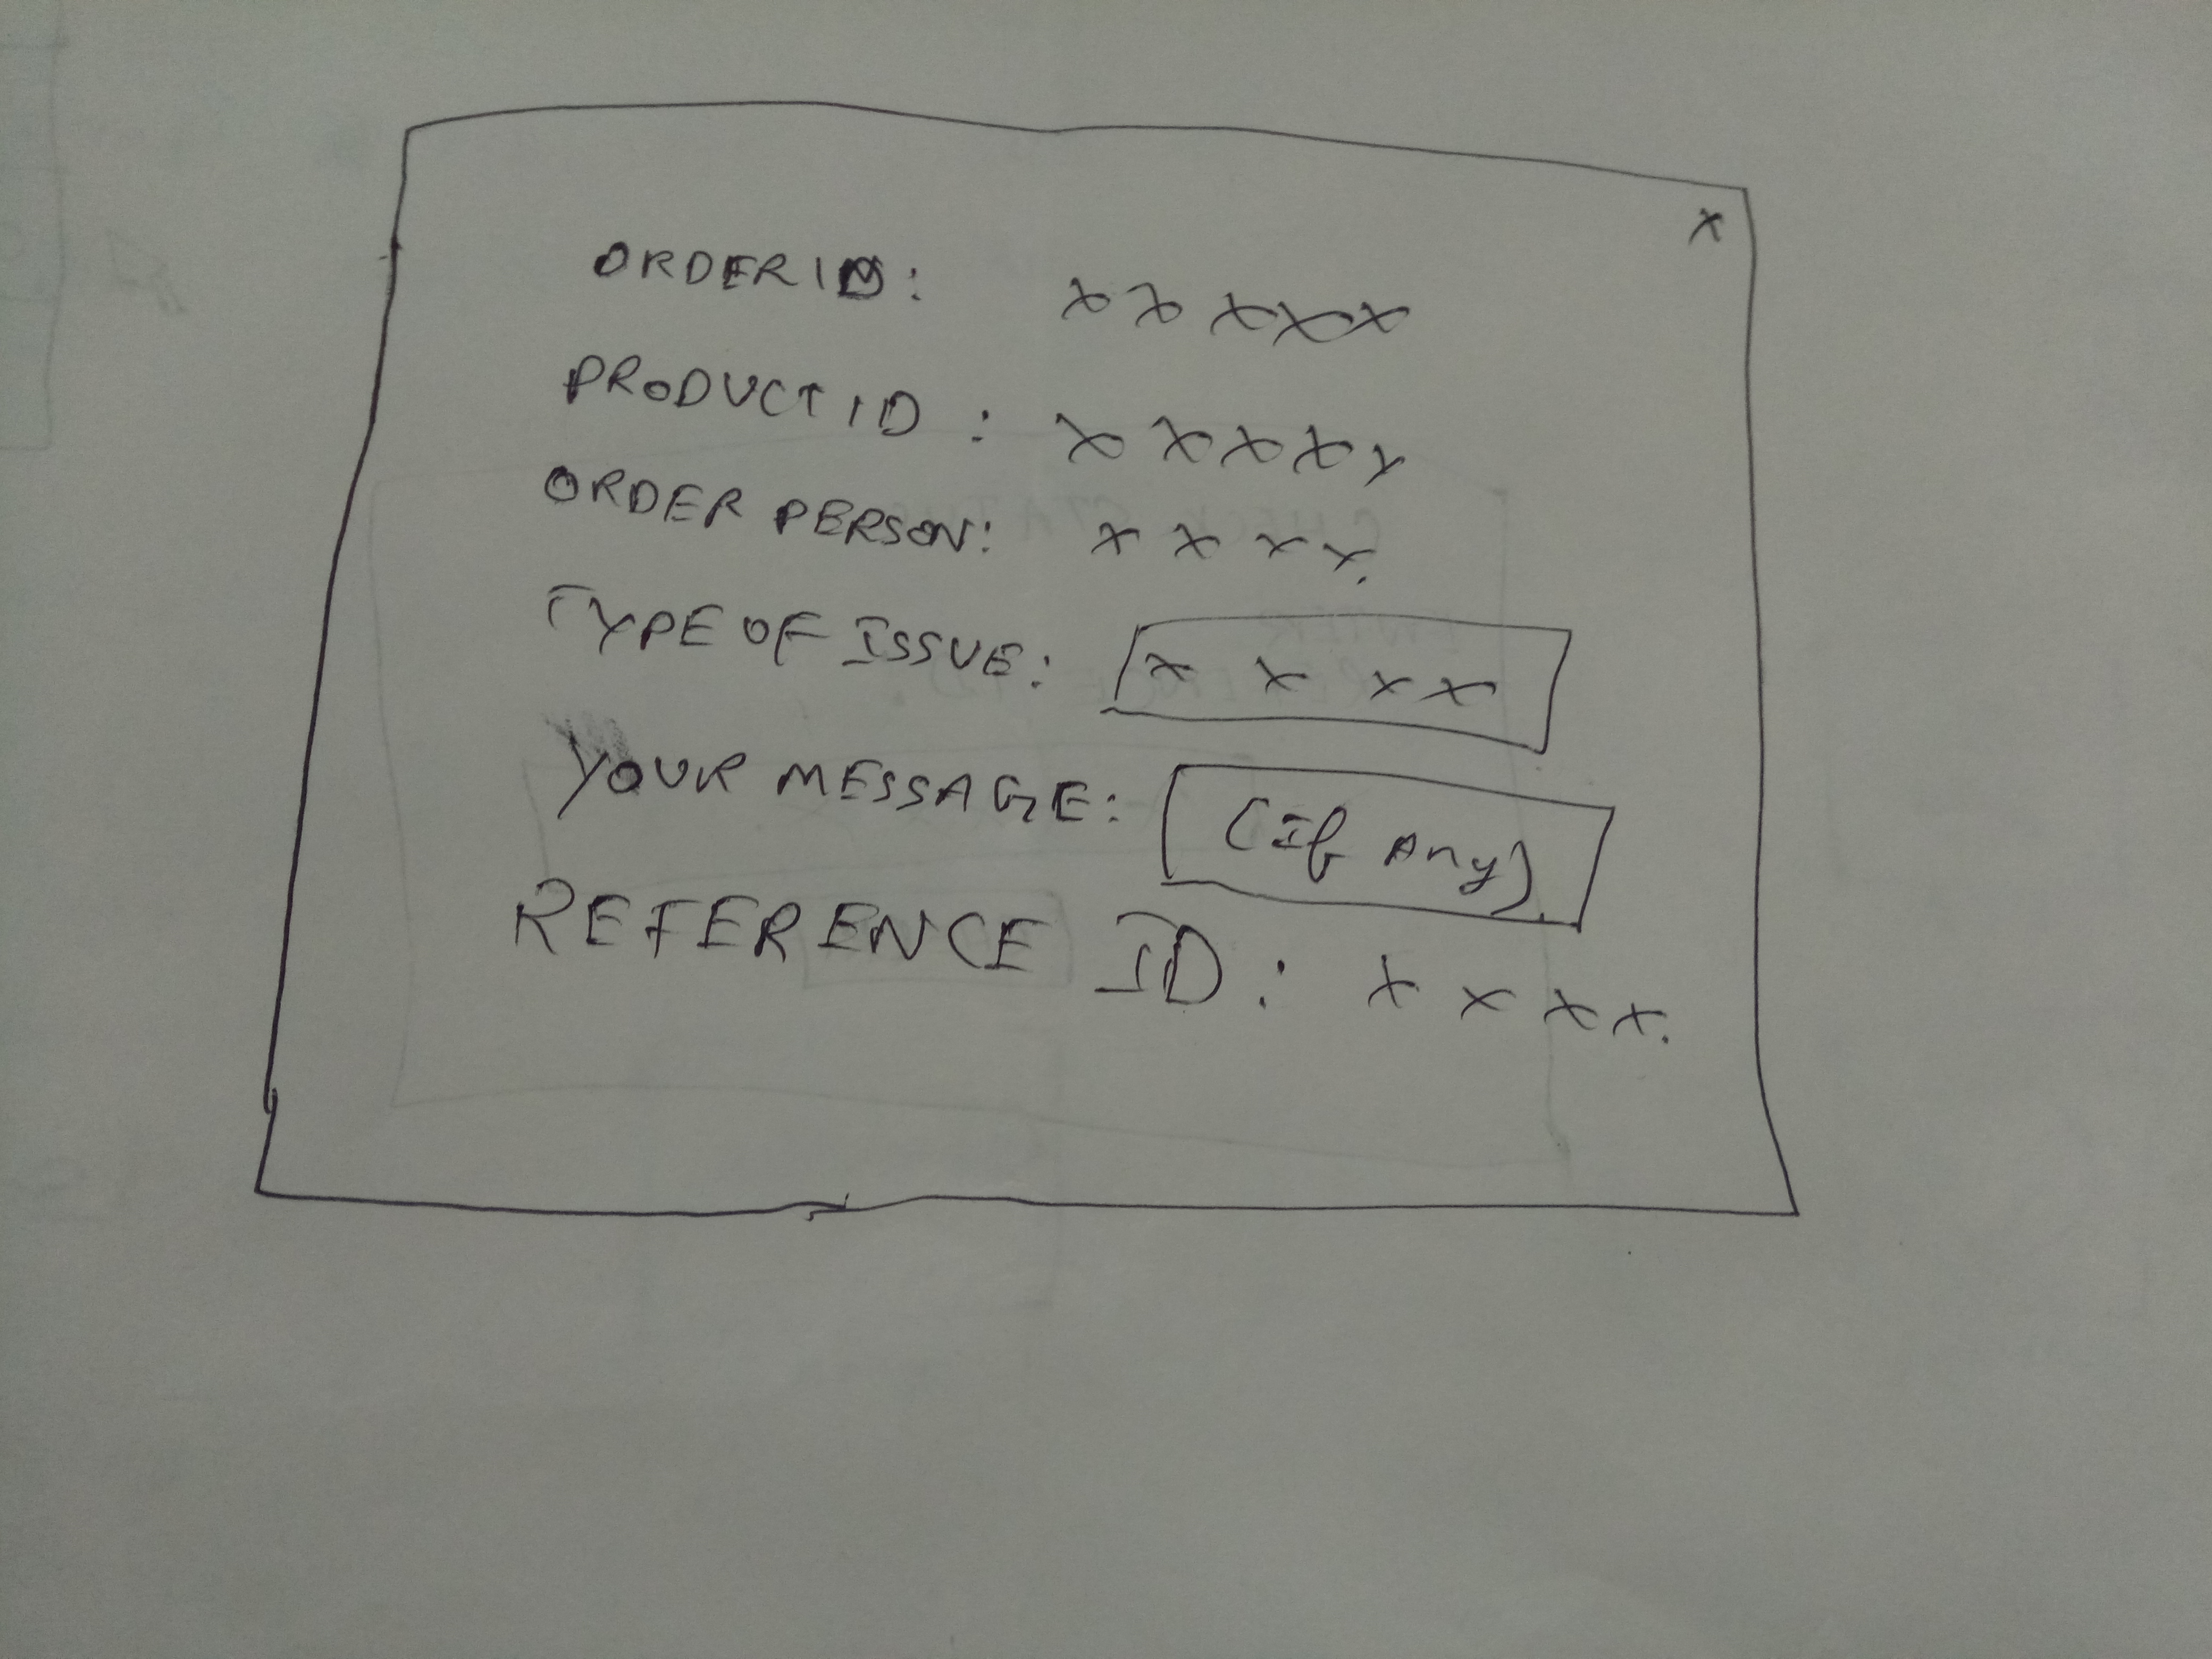 x
ORDER ID: x x x x x
PRODUCT ID : x x x x y
ORDER PERSON: x x x x.
TYPE OF ISSUE: x x x x
YOUR MESSAGE: (If Any).
REFERENCE ID: x x x x.